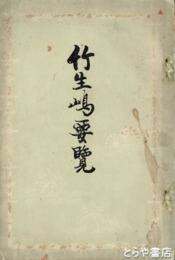 竹生嶋要覽
とらや書店